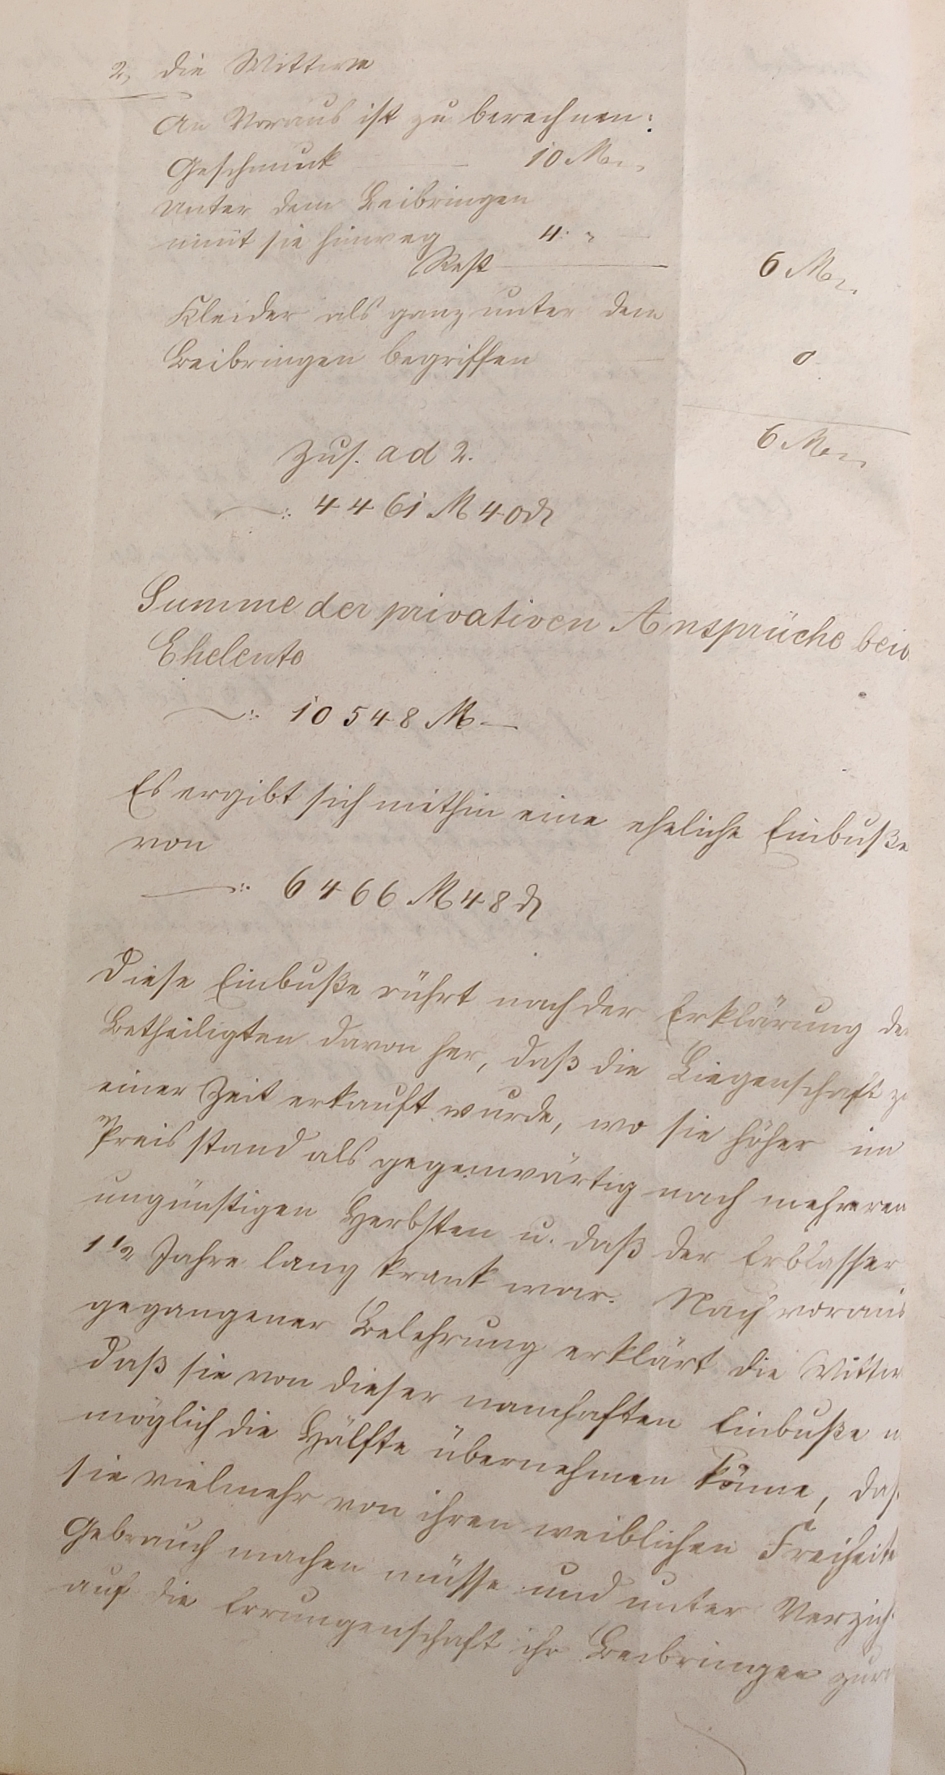 2, die Wittwe
An Voraus ist zu berechnen:
Geschmuck 10 M
Unter dem Beibringen
nimt sie hinweg 4. "
Rest 6 M
Kleider als ganz unter dem
Beibringen begriffen 0.
6 M
Zus. ad 2.
4461 M 40 ₰
Summe der privativen Ansprüche beid
Eheleute
10548 M —
Es ergibt sich mithin eine eheliche Einbuße
von
6466 M 48 ₰
Diese Einbuße rührt nach der Erklärung de
Betheiligten davon her, daß die Liegenschaft z
einer Zeit erkauft wurde, wo sie höher im
Preis stand als gegenwärtig nach mehreren
ungünstigen Herbsten u. daß der Erblasser
1 1/2 Jahre lang krank war. Nach voraus
gegangener Belehrung erklärt die Wittw
daß sie von dieser namhaften Einbuße u
möglich die Hälfte übernehmen könne, daß
sie vielmehr von ihren weiblichen Freiheite
Gebrauch machen müsse und unter Verzich
auf die Errungenschaft ihr Beibringen zur